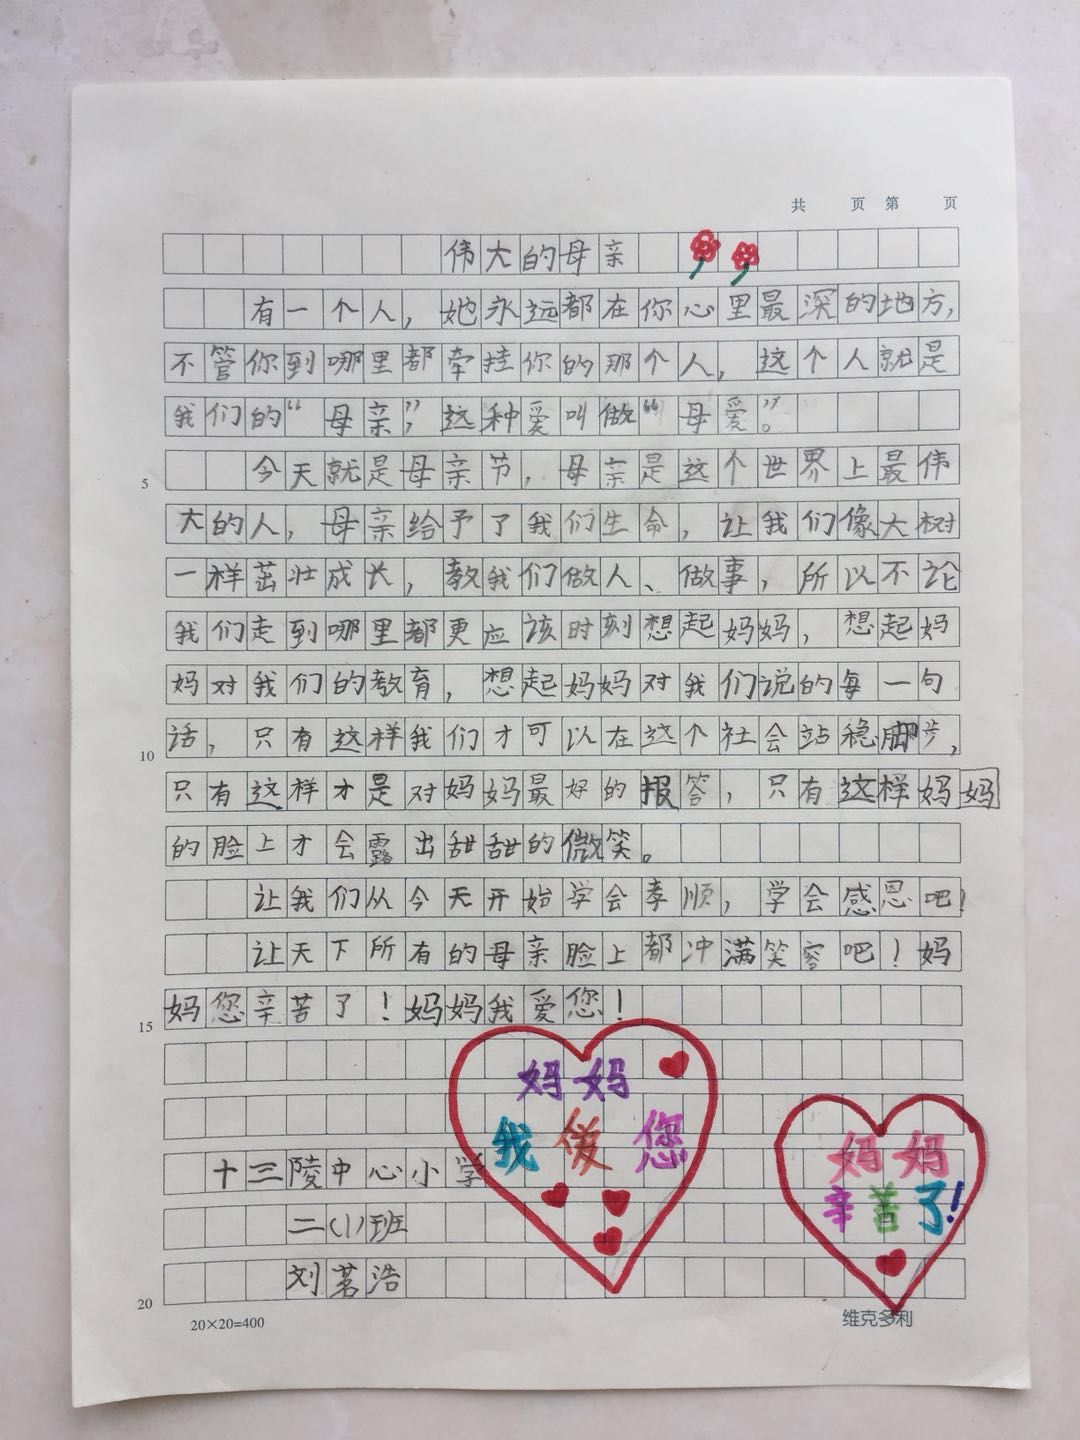 共 页 第 页
伟大的母亲
有一个人，她永远都在你心里最深的地方，
不管你到哪里都牵挂你的那个人，这个人就是
我们的“母亲”，这种爱叫做“母爱”。
5 今天就是母亲节，母亲是这个世界上最伟
大的人，母亲给予了我们生命，让我们像大树
一样茁壮成长，教我们做人、做事，所以不论
我们走到哪里都更应该时刻想起妈妈，想起妈
妈对我们的教育，想起妈妈对我们说的每一句
10 话，只有这样我们才可以在这个社会站稳脚步，
只有这样才是对妈妈最好的报答，只有这样妈妈
的脸上才会露出甜甜的微笑。
让我们从今天开始学会孝顺，学会感恩吧！
让天下所有的母亲脸上都冲满笑容吧！妈
15 妈您辛苦了！妈妈我爱您！
妈妈
我爱您
妈妈
辛苦了！
十三陵中心小学
二(1)班
20 刘茗浩
20×20=400
维克多利